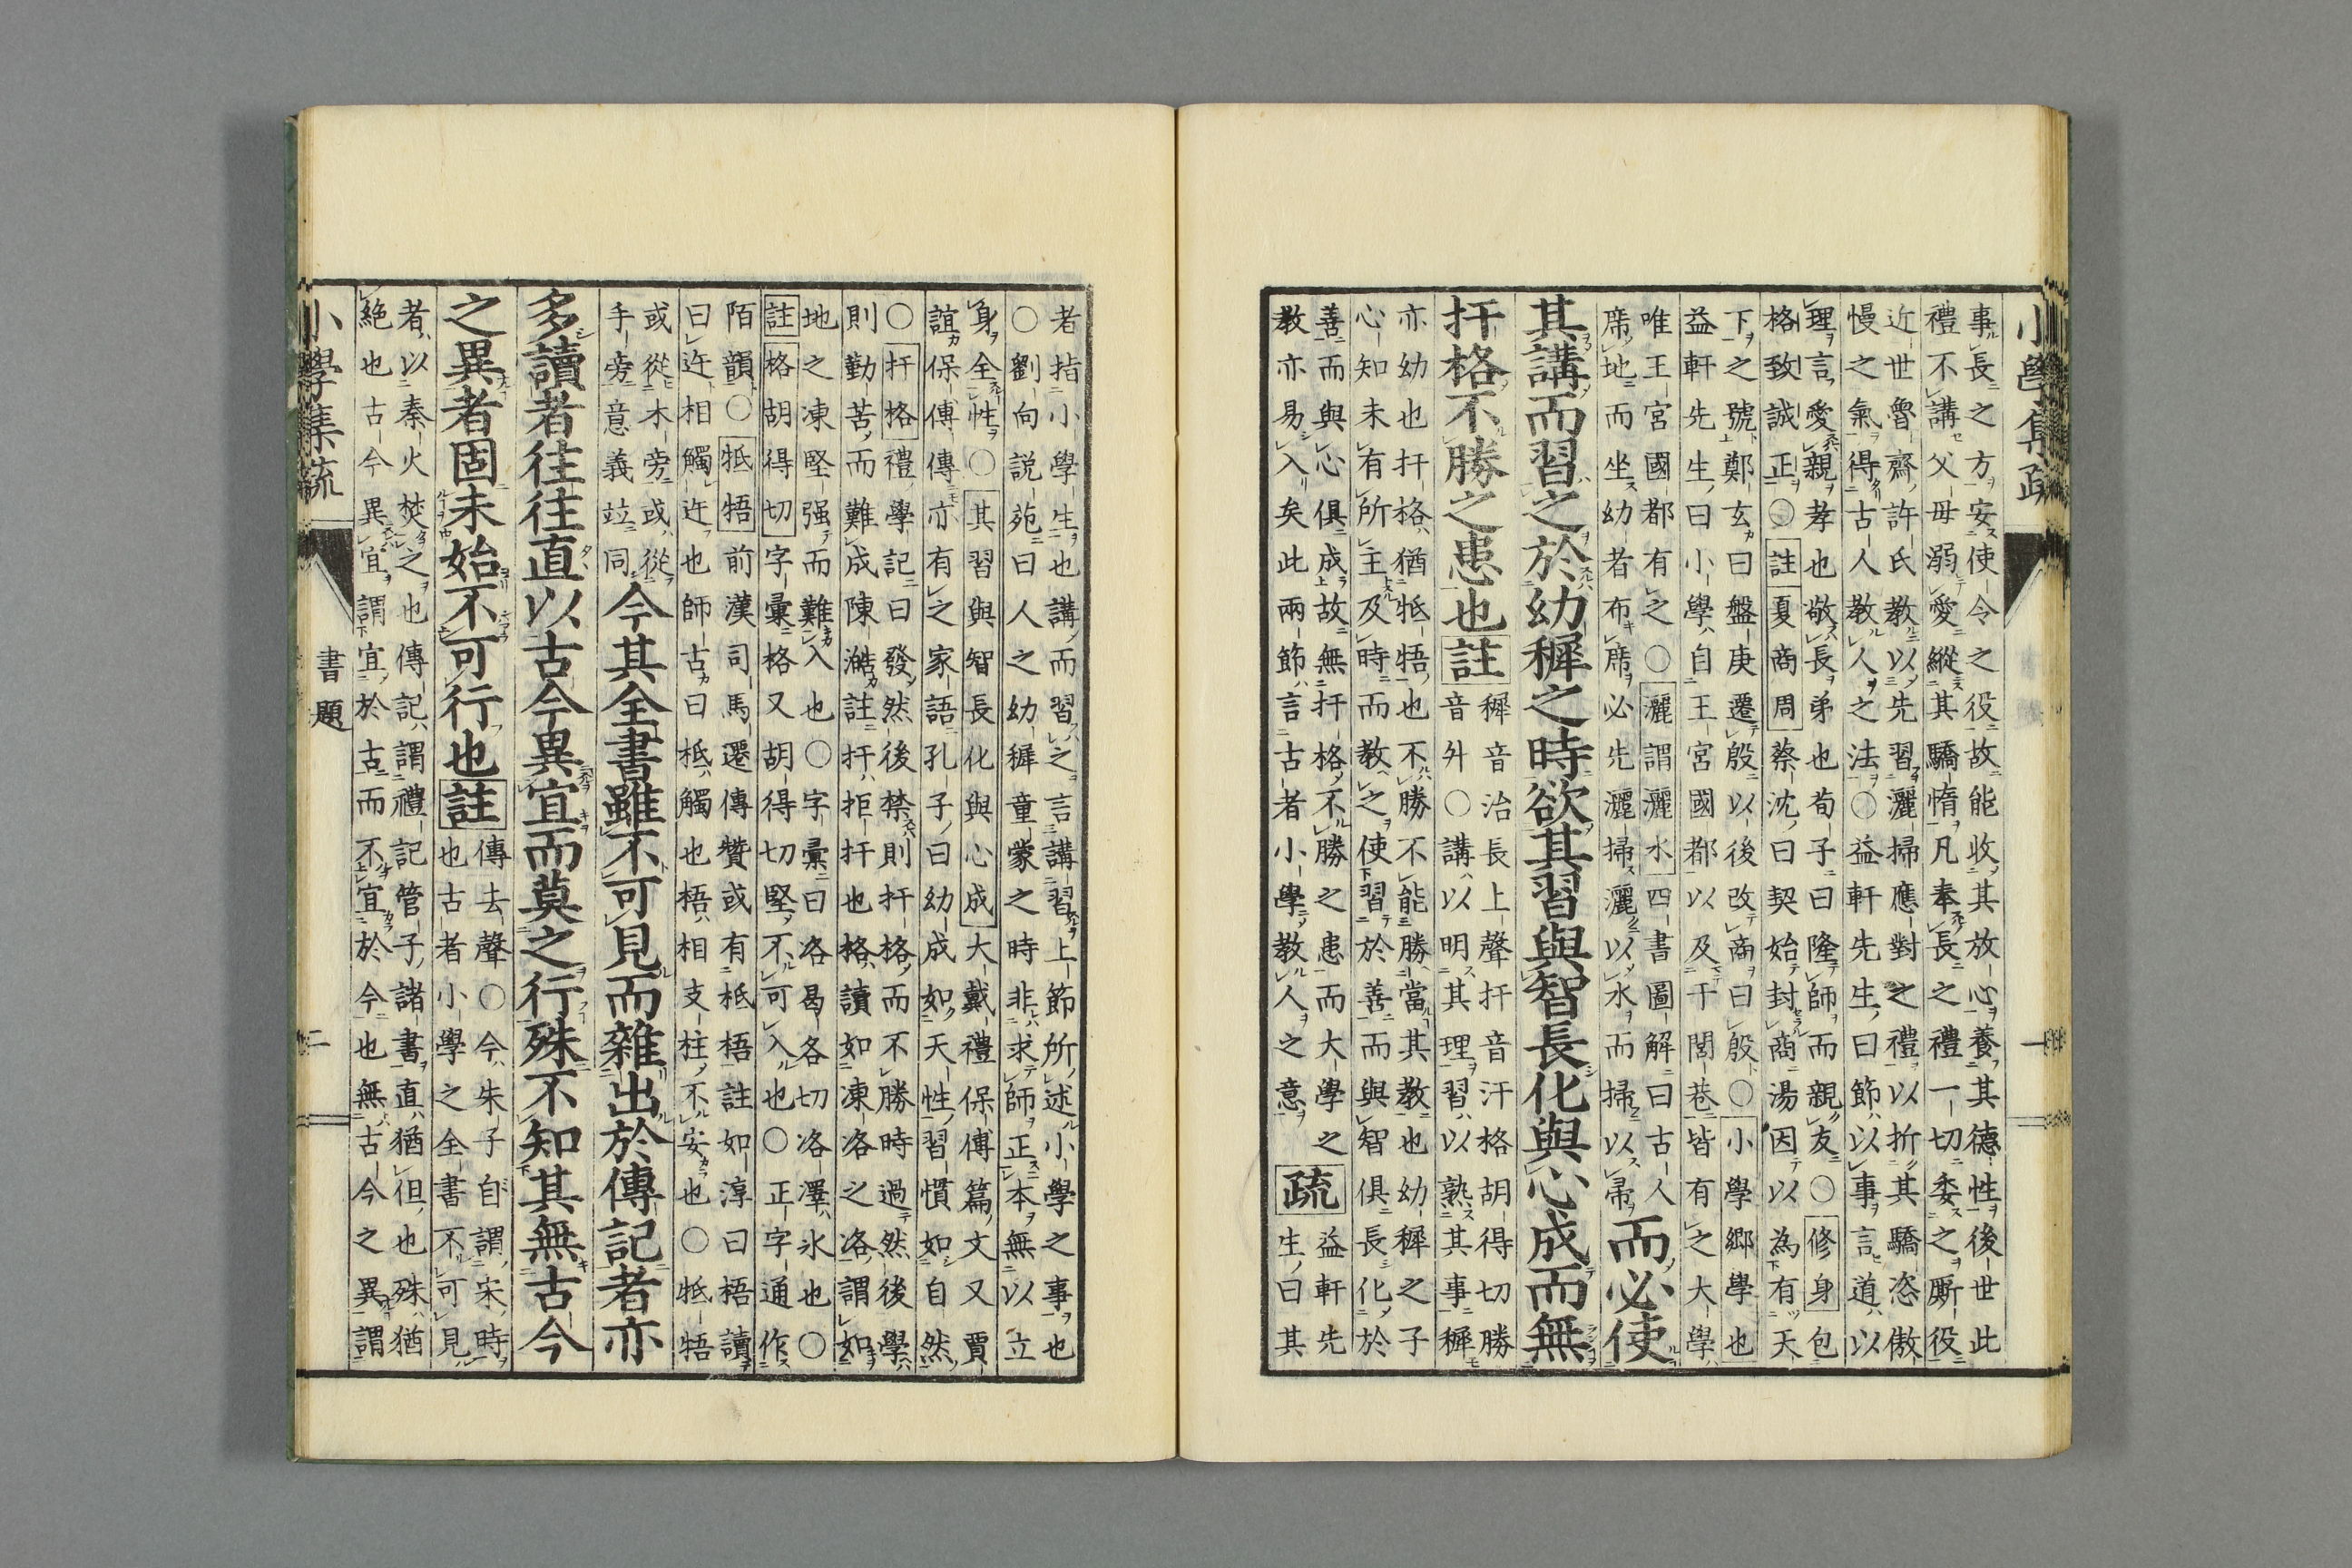 小學集疏 一
事長之方安使令之役故能收其放心養其德性後世此
禮不講父母溺愛縱其驕惰凡奉長之禮一切委之廝役
近世魯齋許氏教以先習灑掃應對之禮以折其驕恣傲
慢之氣得古人教人之法○益軒先生曰節以事言道以
理言愛親孝也敬長弟也荀子曰隆師而親友○修身包
格致誠正○註夏商周蔡沈曰契始封商湯因以為有天
下之號鄭玄曰盤庚遷殷以後改商曰殷○小學鄉學也
益軒先生曰小學自王宮國都以及于閭巷皆有之大學
唯王宮國都有之○灑謂灑水四書圖解曰古人
席地而坐幼者布席必先灑掃灑以水而掃以帚
而必使
其講而習之於幼穉之時欲其習與智長化與心成而無
扞格不勝之患也註
穉音治長上聲扞音汗格胡得切勝
音升○講以明其理習以熟其事穉
亦幼也扞格猶牴牾也不勝不能勝當其教也幼穉之子
心知未有所主及時而教之使習於善而與智俱長化於
善而與心俱成故無扞格不勝之患而大學之
教亦易入矣此兩節言古者小學教人之意
疏
益軒先
生曰其
者指小學生也講而習之言講習上節所述小學之事也
○劉向說苑曰人之幼穉童蒙之時非求師正本無以立
身全性○其習與智長化與心成大戴禮保傅篇文又賈
誼保傅傳亦有之家語孔子曰幼成如天性習慣如自然
○扞格禮學記曰發然後禁則扞格而不勝時過然後學
則勤苦而難成陳澔註扞拒扞也格讀如凍洛之洛謂如
地之凍堅强而難入也○字彙曰洛曷各切洛澤氷也○
註格胡得切字彙格又胡得切堅不可入也○正字通作
陌韻○牴牾前漢司馬遷傳贊或有柢梧註如淳曰梧讀
曰迕相觸迕也師古曰柢觸也梧相支柱不安也○牴牾
或從木旁或從
手旁意義竝同
今其全書雖不可見而雜出於傳記者亦
多讀者往往直以古今異宜而莫之行殊不知其無古今
之異者固未始不可行也註
傳去聲○今朱子自謂宋時
也古者小學之全書不可見
者以秦火焚之也傳記謂禮記管子諸書直猶但也殊猶
絕也古今異宜謂宜於古而不宜於今也無古今之異謂
小學集疏 書題 二